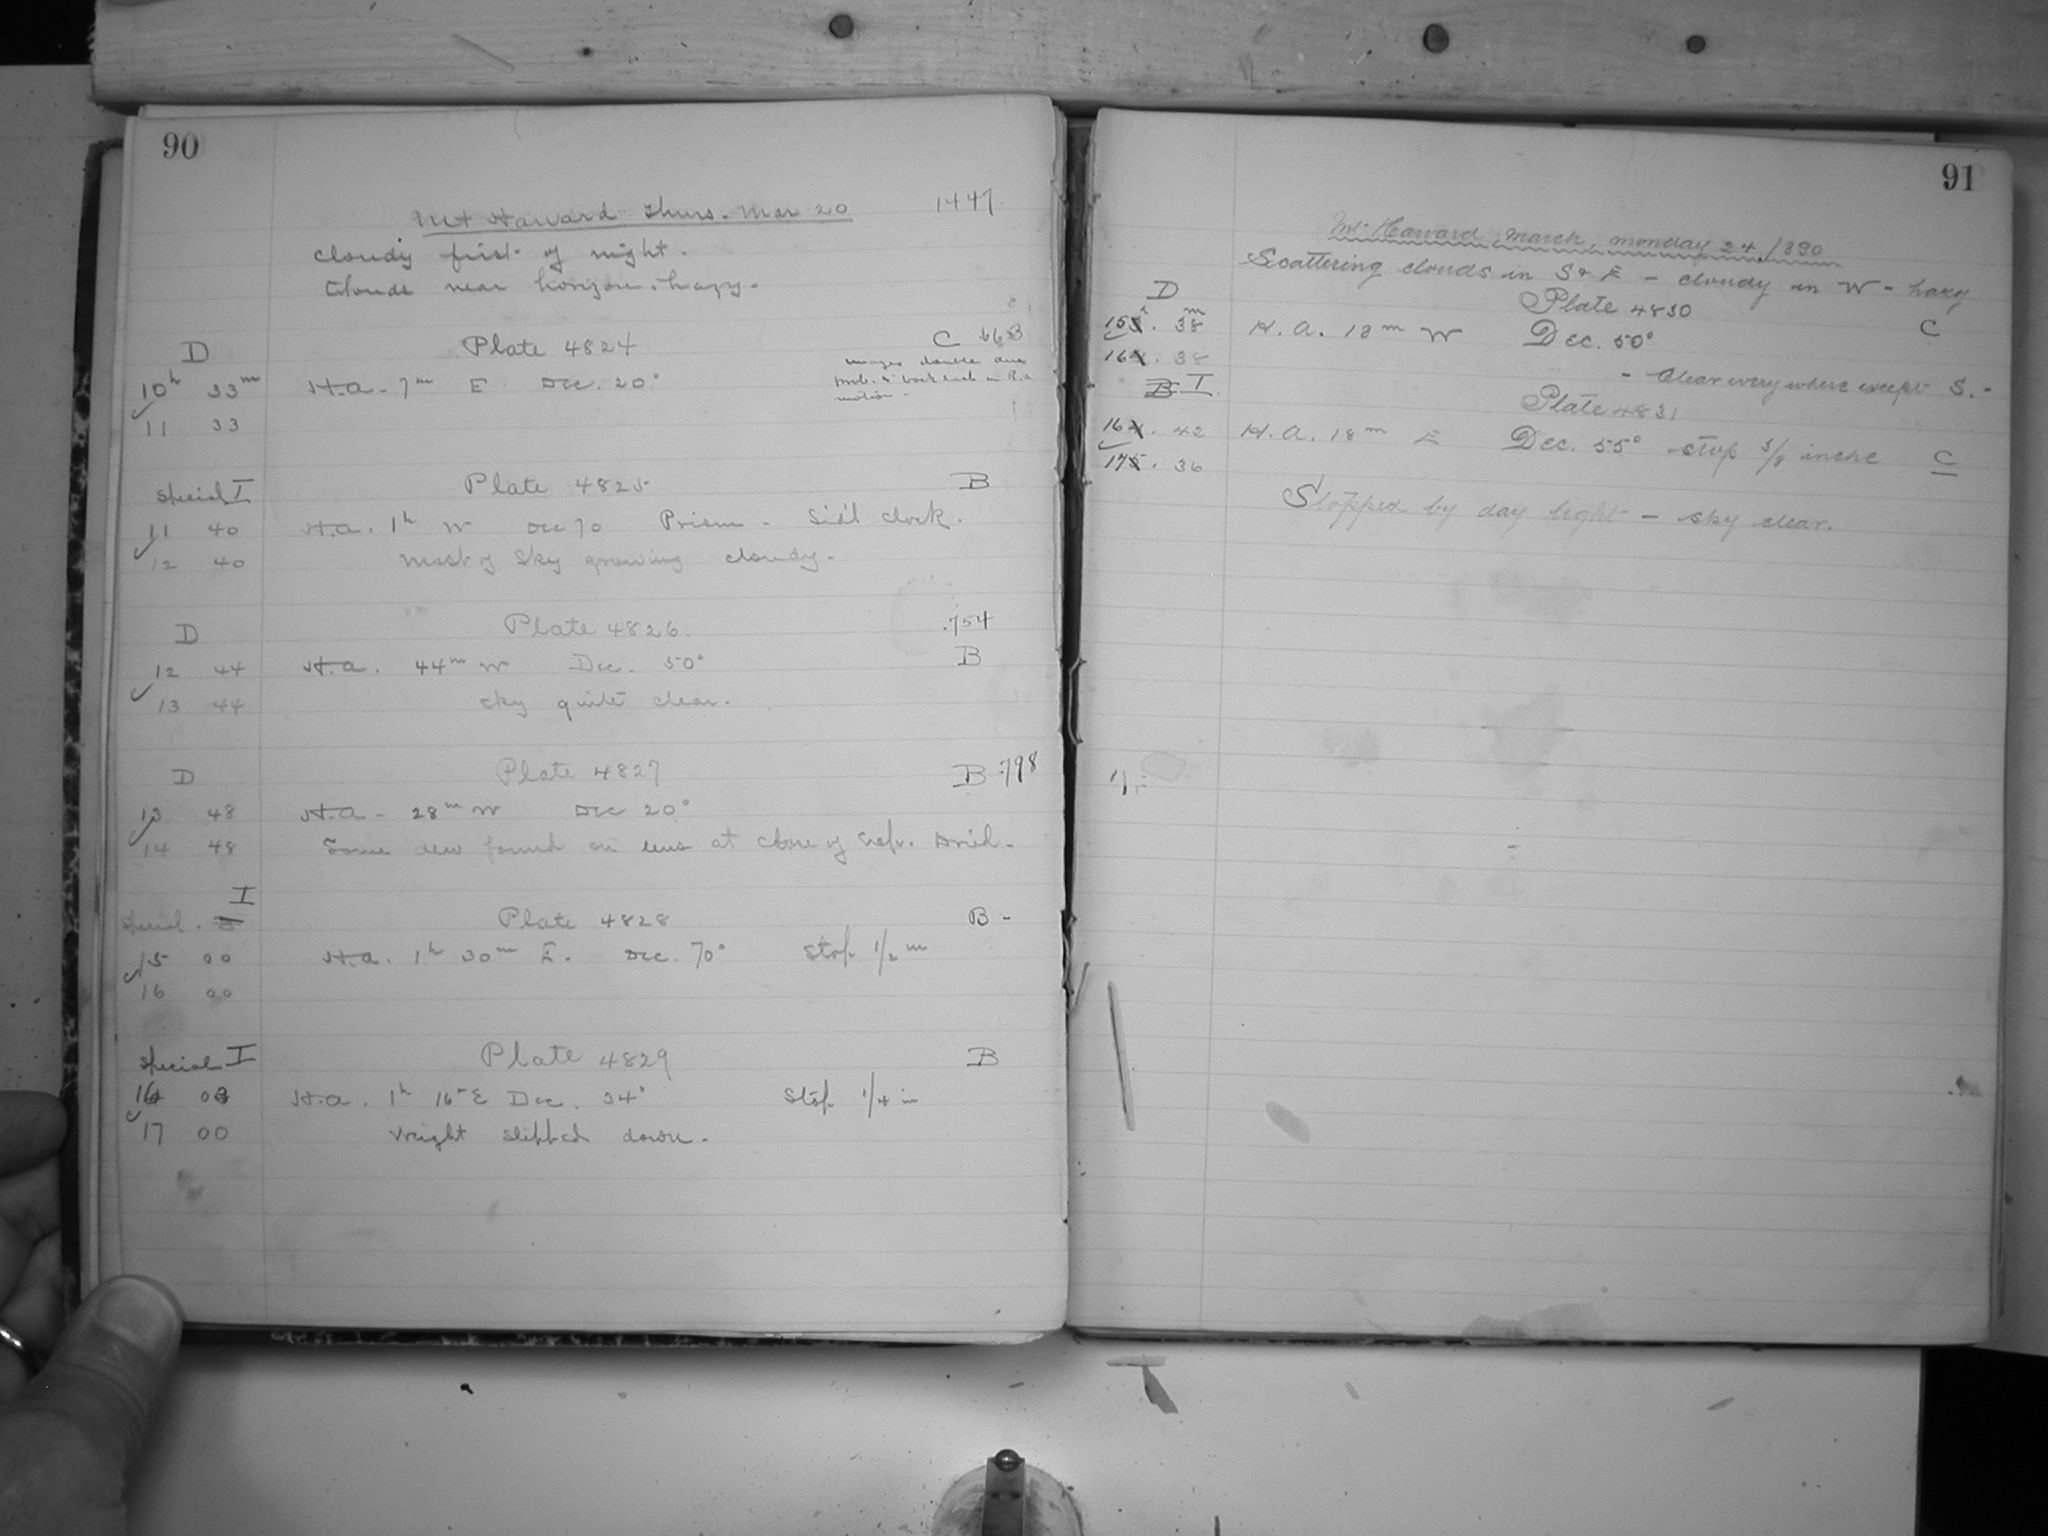 90
Mt Harvard Thurs. Mar 20 1447
Cloudy first of night.
Clouds near horizon. hazy.
D Plate 4824 C
images double due
prob. to back lash in R.A
motion.
10h 33m H.A. 7m E Dec. 20°
11 33
Special I Plate 4825 B
11 40 H.A. 1h W Dec 70 Prism - Sid'l clock.
12 40 most of sky growing cloudy.
D Plate 4826. .754
12 44 H.A. 44m W Dec. 50° B
13 44 sky quite clear.
D Plate 4827 B .798
13 48 H.A - 28m W Dec 20°
14 48 Some dew found on lens at close of Exp. Dried.
I
Special. Plate 4828 B -
15 00 H.A. 1h 30m E. Dec. 70° Stop 1/2 in
16 00
Special I Plate 4829 B
16 03 H.A. 1h 16m E Dec. 34° Stop 1/4 in
17 00 Weight slipped down.
91
Mt. Harvard, March, monday 24/1890
Scattering clouds in S & E - cloudy in W - hazy
D Plate 4830
15h. 38m H. A. 18m W Dec. 50° C
16. 38
- Clear every where except S. -
I Plate 4831
16. 42 H. A. 18m E Dec. 55° stop 3/8 inche C
17. 36
Stopped by day light - sky clear.